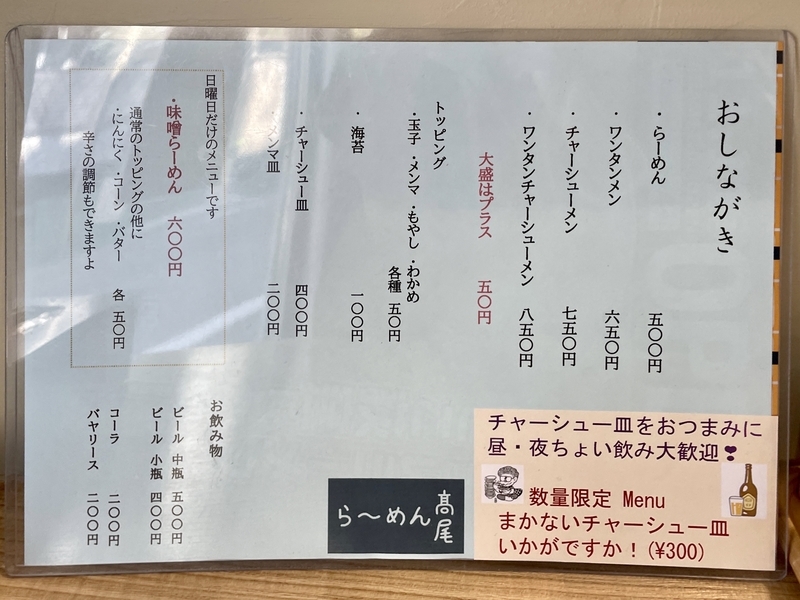 おしながき
・らーめん 五〇〇円
・ワンタンメン 六五〇円
・チャーシューメン 七五〇円
・ワンタンチャーシューメン 八五〇円
大盛はプラス 五〇円
トッピング
・玉子 ・メンマ ・もやし ・わかめ
各種 五〇円
・海苔 一〇〇円
・チャーシュー皿 四〇〇円
・メンマ皿 二〇〇円
日曜日だけのメニューです
・味噌らーめん 六〇〇円
通常のトッピングの他に
・にんにく ・コーン ・バター 各 五〇円
辛さの調節もできますよ
お飲み物
ビール 中瓶 五〇〇円
ビール 小瓶 四〇〇円
コーラ 二〇〇円
バヤリース 二〇〇円
ら〜めん 髙尾
チャーシュー皿をおつまみに
昼・夜ちょい飲み大歓迎❣
数量限定 Menu
まかないチャーシュー皿
いかがですか！(¥300)